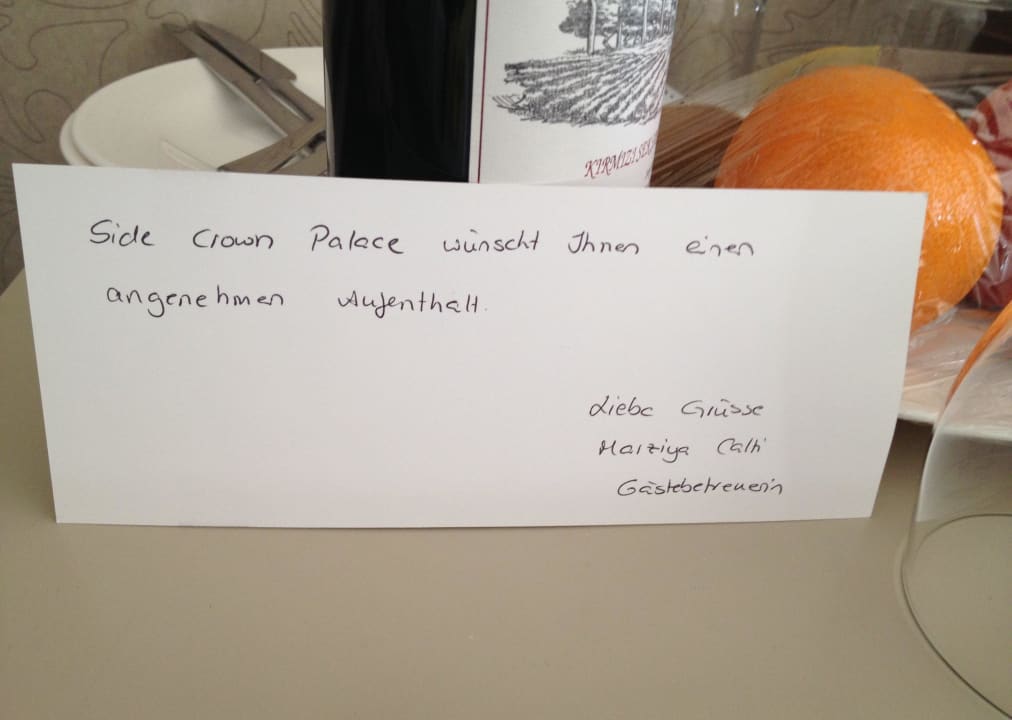 KIRMIZI
Side Crown Palace wünscht Ihnen einen
angenehmen Aufenthalt.
Liebe Grüsse
Marziya
Gästebetreuerin